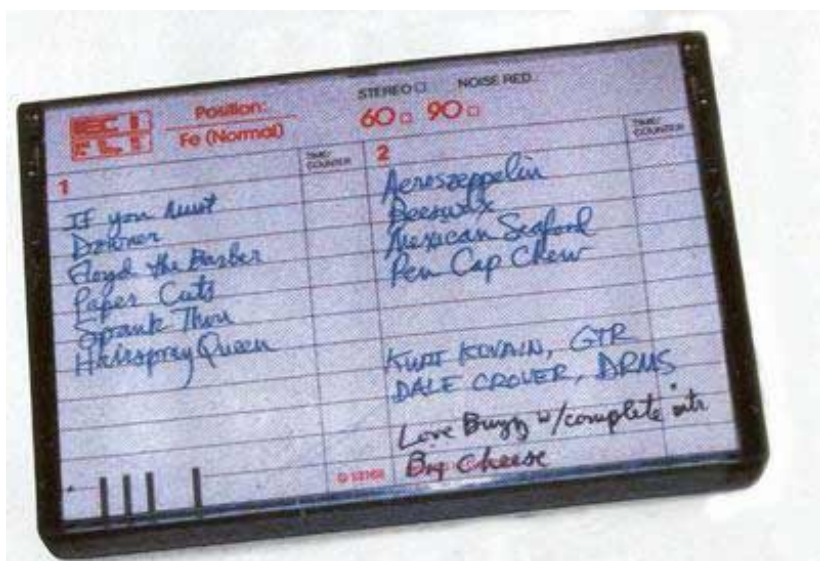 Position:
Fe (Normal)
STEREO NOISE RED.
60 90
1
TIME/
COUNTER
If you Must
Downer
Floyd the Barber
Paper Cuts
Spank Thru
Hairspray Queen
2
TIME/
COUNTER
Aeroszeppelin
Beeswax
Mexican Seafood
Pen Cap Chew
KURT KOVAIN, GTR
DALE CROVER, DRMS
Love Buzz w/complete
Big Cheese